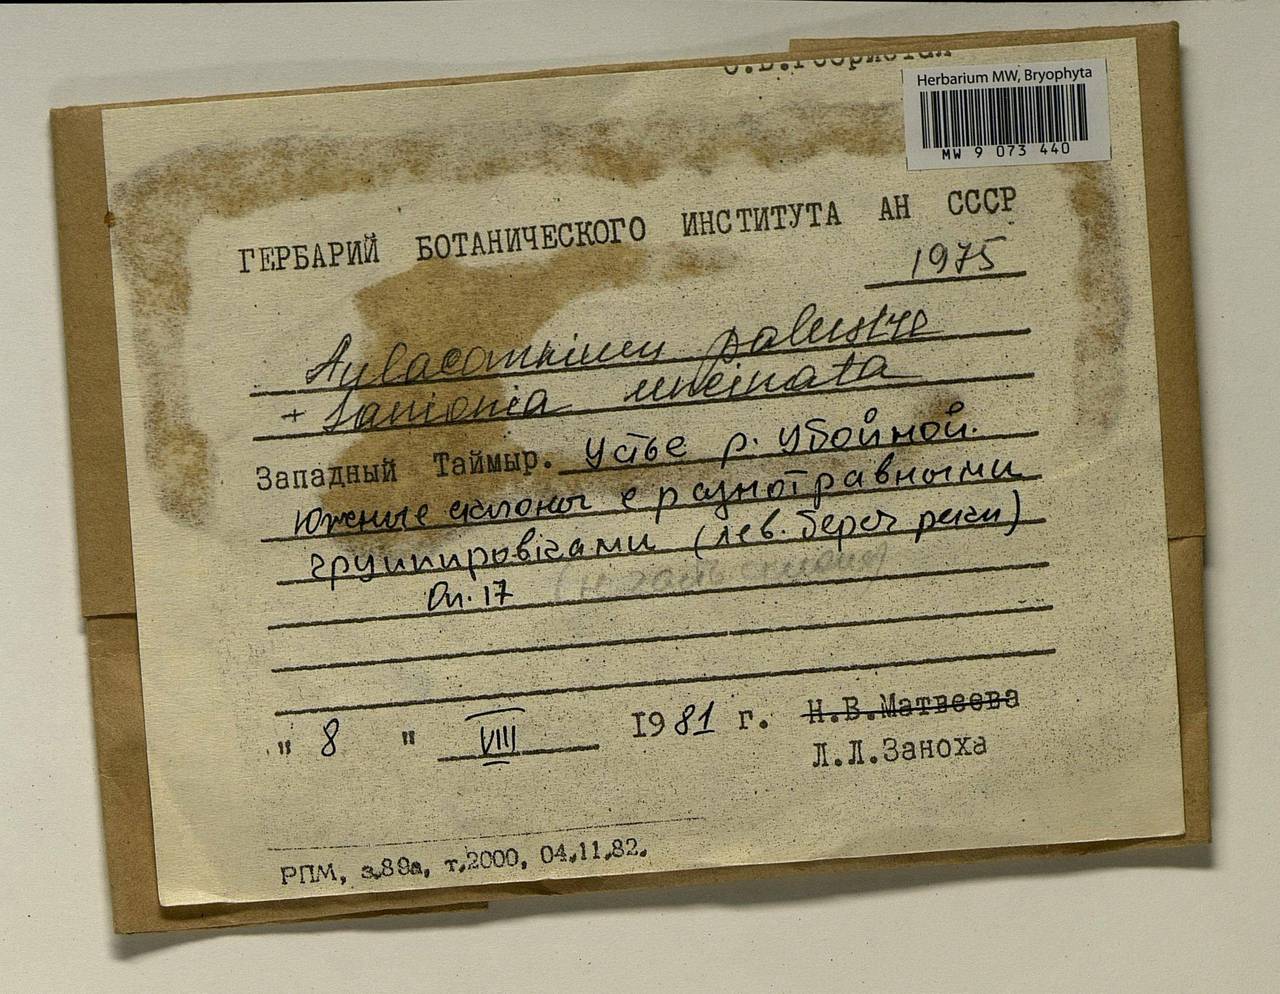 Herbarium MW, Bryophyta
MW 9 073 440
ГЕРБАРИЙ БОТАНИЧЕСКОГО ИНСТИТУТА АН СССР
1975
Aulacomnium palustre
+ Sanionia uncinata
Западный Таймыр. Устье р. Убойной.
Южные склоны с разнотравными
группировками (лев. берег реки)
Оп. 17
" 8 " VIII 1981 г. Н.В.Матвеева
Л.Л.Заноха
РПМ, з.89а, т.2000, 04.11.82.